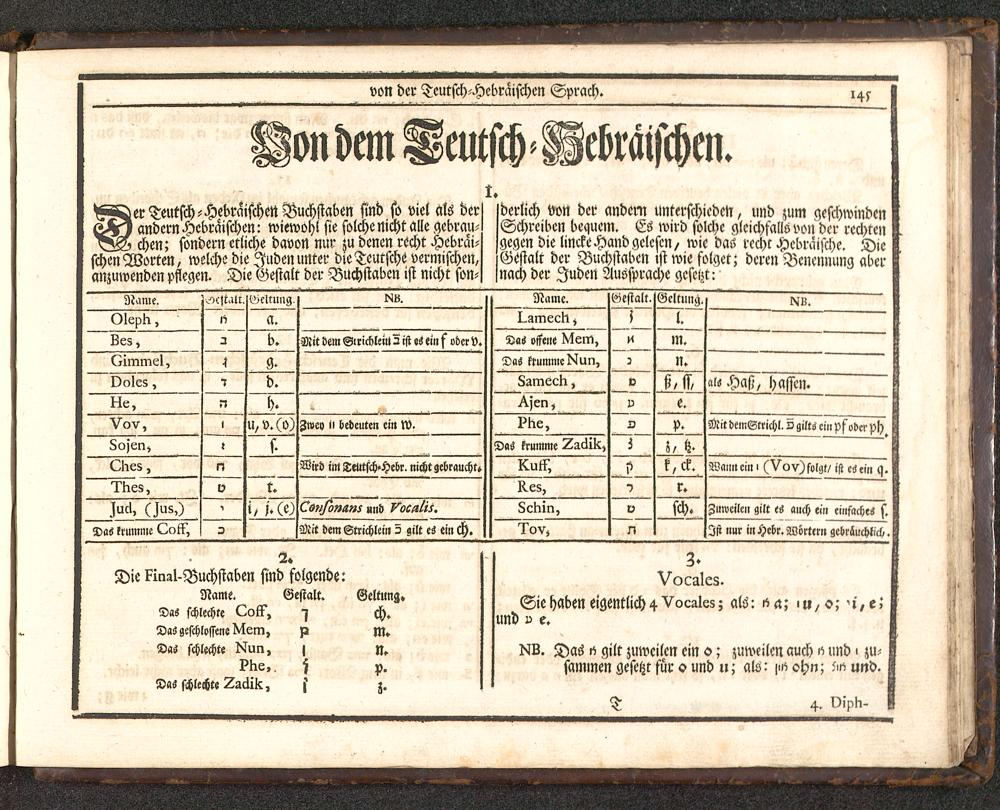 von der Teutsch-Hebräischen Sprach.
145
Von dem Teutsch-Hebräischen.
1.
Der Teutsch-Hebräischen Buchstaben sind so viel als der
andern Hebräischen: wiewohl sie solche nicht alle gebrau-
chen; sondern etliche davon nur zu denen recht Hebräi-
schen Worten, welche die Juden unter die Teutsche vermischen,
anzuwenden pflegen. Die Gestalt der Buchstaben ist nicht son-
derlich von der andern unterschieden, und zum geschwinden
Schreiben bequem. Es wird solche gleichfalls von der rechten
gegen die lincke Hand gelesen, wie das recht Hebräische. Die
Gestalt der Buchstaben ist wie folget; deren Benennung aber
nach der Juden Aussprache gesetzt:
Name. Gestalt. Geltung. NB.
Oleph, א a.
Bes, ב b. Mit dem Strichlein בֿ ist es ein f oder v.
Gimmel, ג g.
Doles, ד d.
He, ה h.
Vov, ו u, v. (o) Zwey וו bedeuten ein w.
Sojen, ז s.
Ches, ח Wird im Teutsch-Hebr. nicht gebraucht.
Thes, ט t.
Jud, (Jus,) י i, j. (e) Consonans und Vocalis.
Das krumme Coff, כ Mit dem Strichlein כֿ gilt es ein ch.
Name. Gestalt. Geltung. NB.
Lamech, ל l.
Das offene Mem, מ m.
Das krumme Nun, נ n.
Samech, ס ß, ss, als Haß, hassen.
Ajen, ע e.
Phe, פ p. Mit dem Strichl. פֿ gilts ein pf oder ph.
Das krumme Zadik, צ z, tz.
Kuff, ק k, ck. Wann ein ו (Vov) folgt/ ist es ein q.
Res, ר r.
Schin, ש sch. Zuweilen gilt es auch ein einfaches s.
Tov, ת Ist nur in Hebr. Wörtern gebräuchlich.
2.
Die Final-Buchstaben sind folgende:
Name. Gestalt. Geltung.
Das schlechte Coff, ך ch.
Das geschlossene Mem, ם m.
Das schlechte Nun, ן n.
Phe, ף p.
Das schlechte Zadik, ץ z.
3.
Vocales.
Sie haben eigentlich 4 Vocales; als: א a; ו u, o; י i, e;
und ע e.
NB. Das א gilt zuweilen ein o; zuweilen auch א und ו zu-
sammen gesetzt für o und u; als: ohn; und.
T
4. Diph-